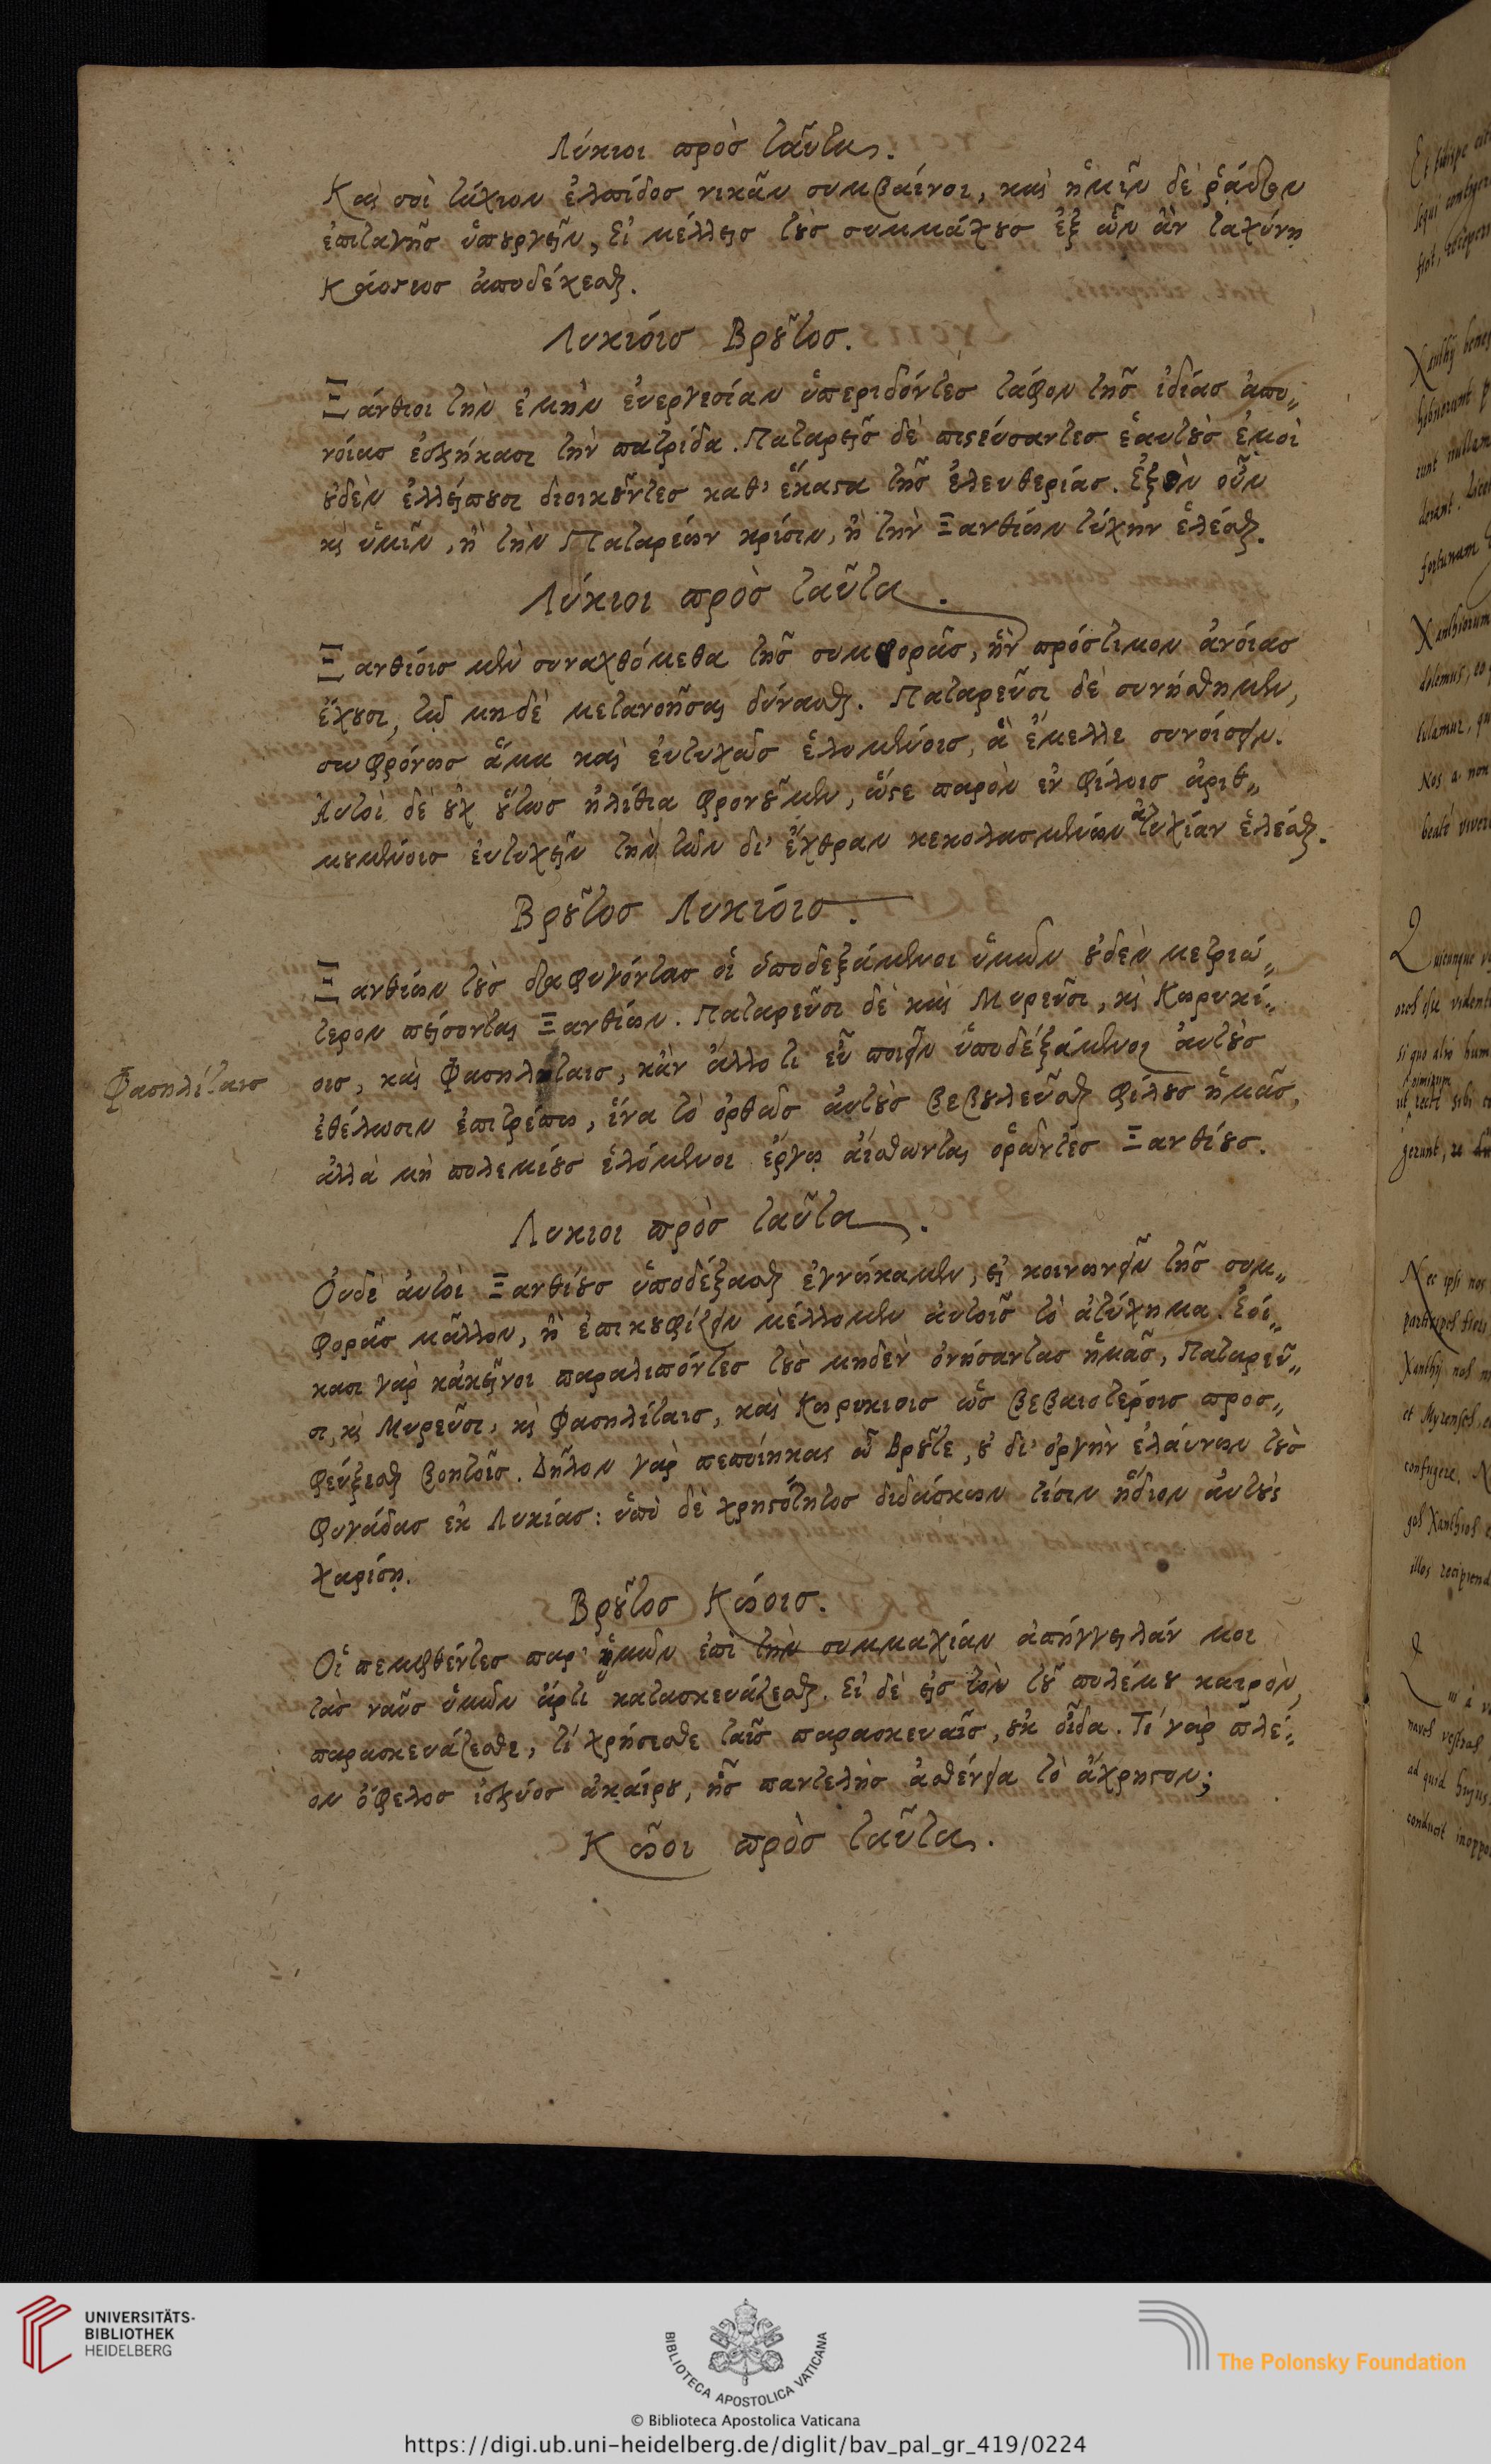 Λύκιοι πρὸς ταῦτα.
Καὶ σοὶ τάχιον ἐλπίδος νικᾶν συμβαίνοι, καὶ ἡμῖν δὲ ῥᾷον
ἐπιταγῆς ὑπουργεῖν, εἰ μέλλεις τοὺς συμμάχους ἐξ ὧν ἂν ταχύνῃ
κρίσεως ἀποδέχεσθαι.
Λυκίοις Βροῦτος.
Ξάνθιοι τὴν ἐμὴν ἐυεργεσίαν ὑπεριδόντες τάφον τῆς ἰδίας ἀπο„
νοίας ἐσχήκασι τὴν πατρίδα. Παταρεῖς δὲ πιστεύσαντες ἑαυτοὺς ἐμοὶ
οὐδὲν ἐλλείπουσι διοικοῦντες καθ' ἕκαστα τῆς ἐλευθερίας. ἐξὸν οὖν
καὶ ὑμῖν, ἢ τὴν Παταρέων κρίσιν, ἢ τὴν Ξανθίων τύχην ἑλέσθαι.
Λύκιοι πρὸς ταῦτα.
Ξανθίοις μὲν συναχθόμεθα τῆς συμφορᾶς, ἣν πρόστιμον ἀνοίας
ἔχουσι, τῷ μηδὲ μετανοῆσαι δύνασθαι. Παταρεῦσι δὲ συνήσθημεν,
σωφρόνως ἅμα καὶ ἐυτυχῶς ἑλομένοις, ἃ ἔμελλε συνοίσειν.
Αυτοὶ δὲ οὐχ οὕτως ἠλίθια φρονοῦμεν, ὥστε παρὸν ἐν φίλοις ἀριθ„
μουμένοις ἐυτυχεῖν τὴν τῶν δι' ἔχθραν κεκολασμένων ἀτυχίαν ἑλέσθαι.
Βροῦτος Λυκίοις.
Ξανθίων τοὺς διαφυγόντας οἱ ὑποδεξάμενοι ὑμῶν οὐδὲν μετριώ„
τερον πείσονται Ξανθίων. Παταρεῦσι δὲ καὶ Μυρεῦσι, καὶ Κωρυκί„
οις, καὶ Φασηλίταις, κἂν ἄλλο τι εὖ ποιεῖν ὑποδεξάμενοι ἀυτοὺς
Φασηλίταις
ἐθέλωσιν ἐπιτρέπω, ἵνα τὸ ὀρθῶς ἀυτοὺς βεβουλεῦσθαι φίλους ἡμᾶς,
ἀλλὰ μὴ πολεμίους ἑλόμενοι ἔργῳ αἴσθωνται ὁρῶντες Ξανθίους.
Λυκιοι πρὸς ταῦτα.
Ὀυδὲ ἀυτοὶ Ξανθίους ὑποδέξασθαι ἐγνώκαμεν, εἰ κοινωνεῖν τῆς συμ„
φορᾶς μᾶλλον, ἢ ἐπικουφίζειν μέλλομεν ἀυτοῖς τὸ ἀτύχημα. Ἐοί„
κασι γὰρ κἀκεῖνοι παραλιπόντες τοὺς μηδὲν ὀνήσαντας ἡμᾶς, Παταρεῦ„
σι, καὶ Μυρεῦσι, καὶ Φασηλίταις, καὶ Κωρυκιοις ὡς βεβαιοτέροις προσ„
φεύξεσθαι βοηθοῖς. Δῆλον γὰρ πεποίηκας ὦ Βροῦτε, οὐ δι' ὀργὴν ἐλαύνων τοὺς
φυγάδας ἐκ Λυκίας: ὑπὸ δὲ χρηστότητος διδάσκων τίσιν ἥδιον ἀυτοὺς
χαρίσῃ.
Βροῦτος Κώοις.
Οἱ πεμφθέντες παρ' ὑμῶν ἐπὶ τὴν συμμαχίαν ἀπήγγειλάν μοι
τὰς ναῦς ὑμῶν ἄρτι κατασκευάζεσθαι. Εἰ δὲ εἰς τὸν τοῦ πολέμου καιρὸν
παρασκευάζεσθε, τί χρήσεσθε ταῖς παρασκευαῖς, οὐκ οἶδα. Τί γὰρ πλέ„
ον ὄφελος ἰσχύος ἀκαίρου, ἧς παντελὴς ἀσθένεια τὸ ἄχρηστον;
Κῶοι πρὸς ταῦτα.
UNIVERSITÄTS-
BIBLIOTHEK
HEIDELBERG
BIBLIOTECA APOSTOLICA VATICANA
The Polonsky Foundation
© Biblioteca Apostolica Vaticana
https://digi.ub.uni-heidelberg.de/diglit/bav_pal_gr_419/0224